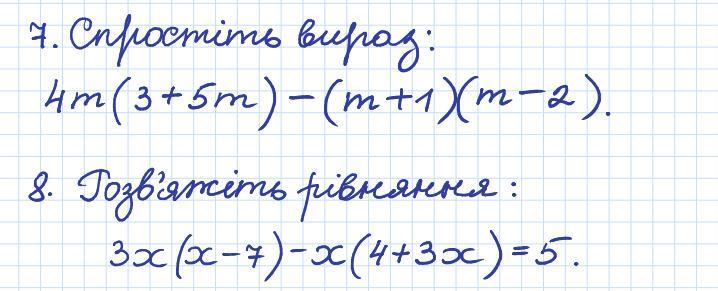 7. Спростіть вираз:
4m(3+5m)-(m+1)(m-2).
8. Розв'яжіть рівняння:
3x(x-7)-x(4+3x)=5.